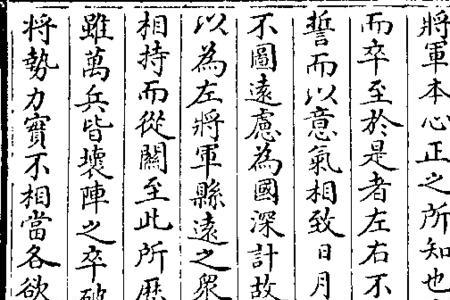 將軍本心正之所知也
而卒至於是者左右不
誓而以意氣相致日月
不圖遠慮為國深計故
以為左將軍縣遠之衆
相持而從闗至此所歷
雖萬兵皆壞陣之卒破
將勢力實不相當各欲